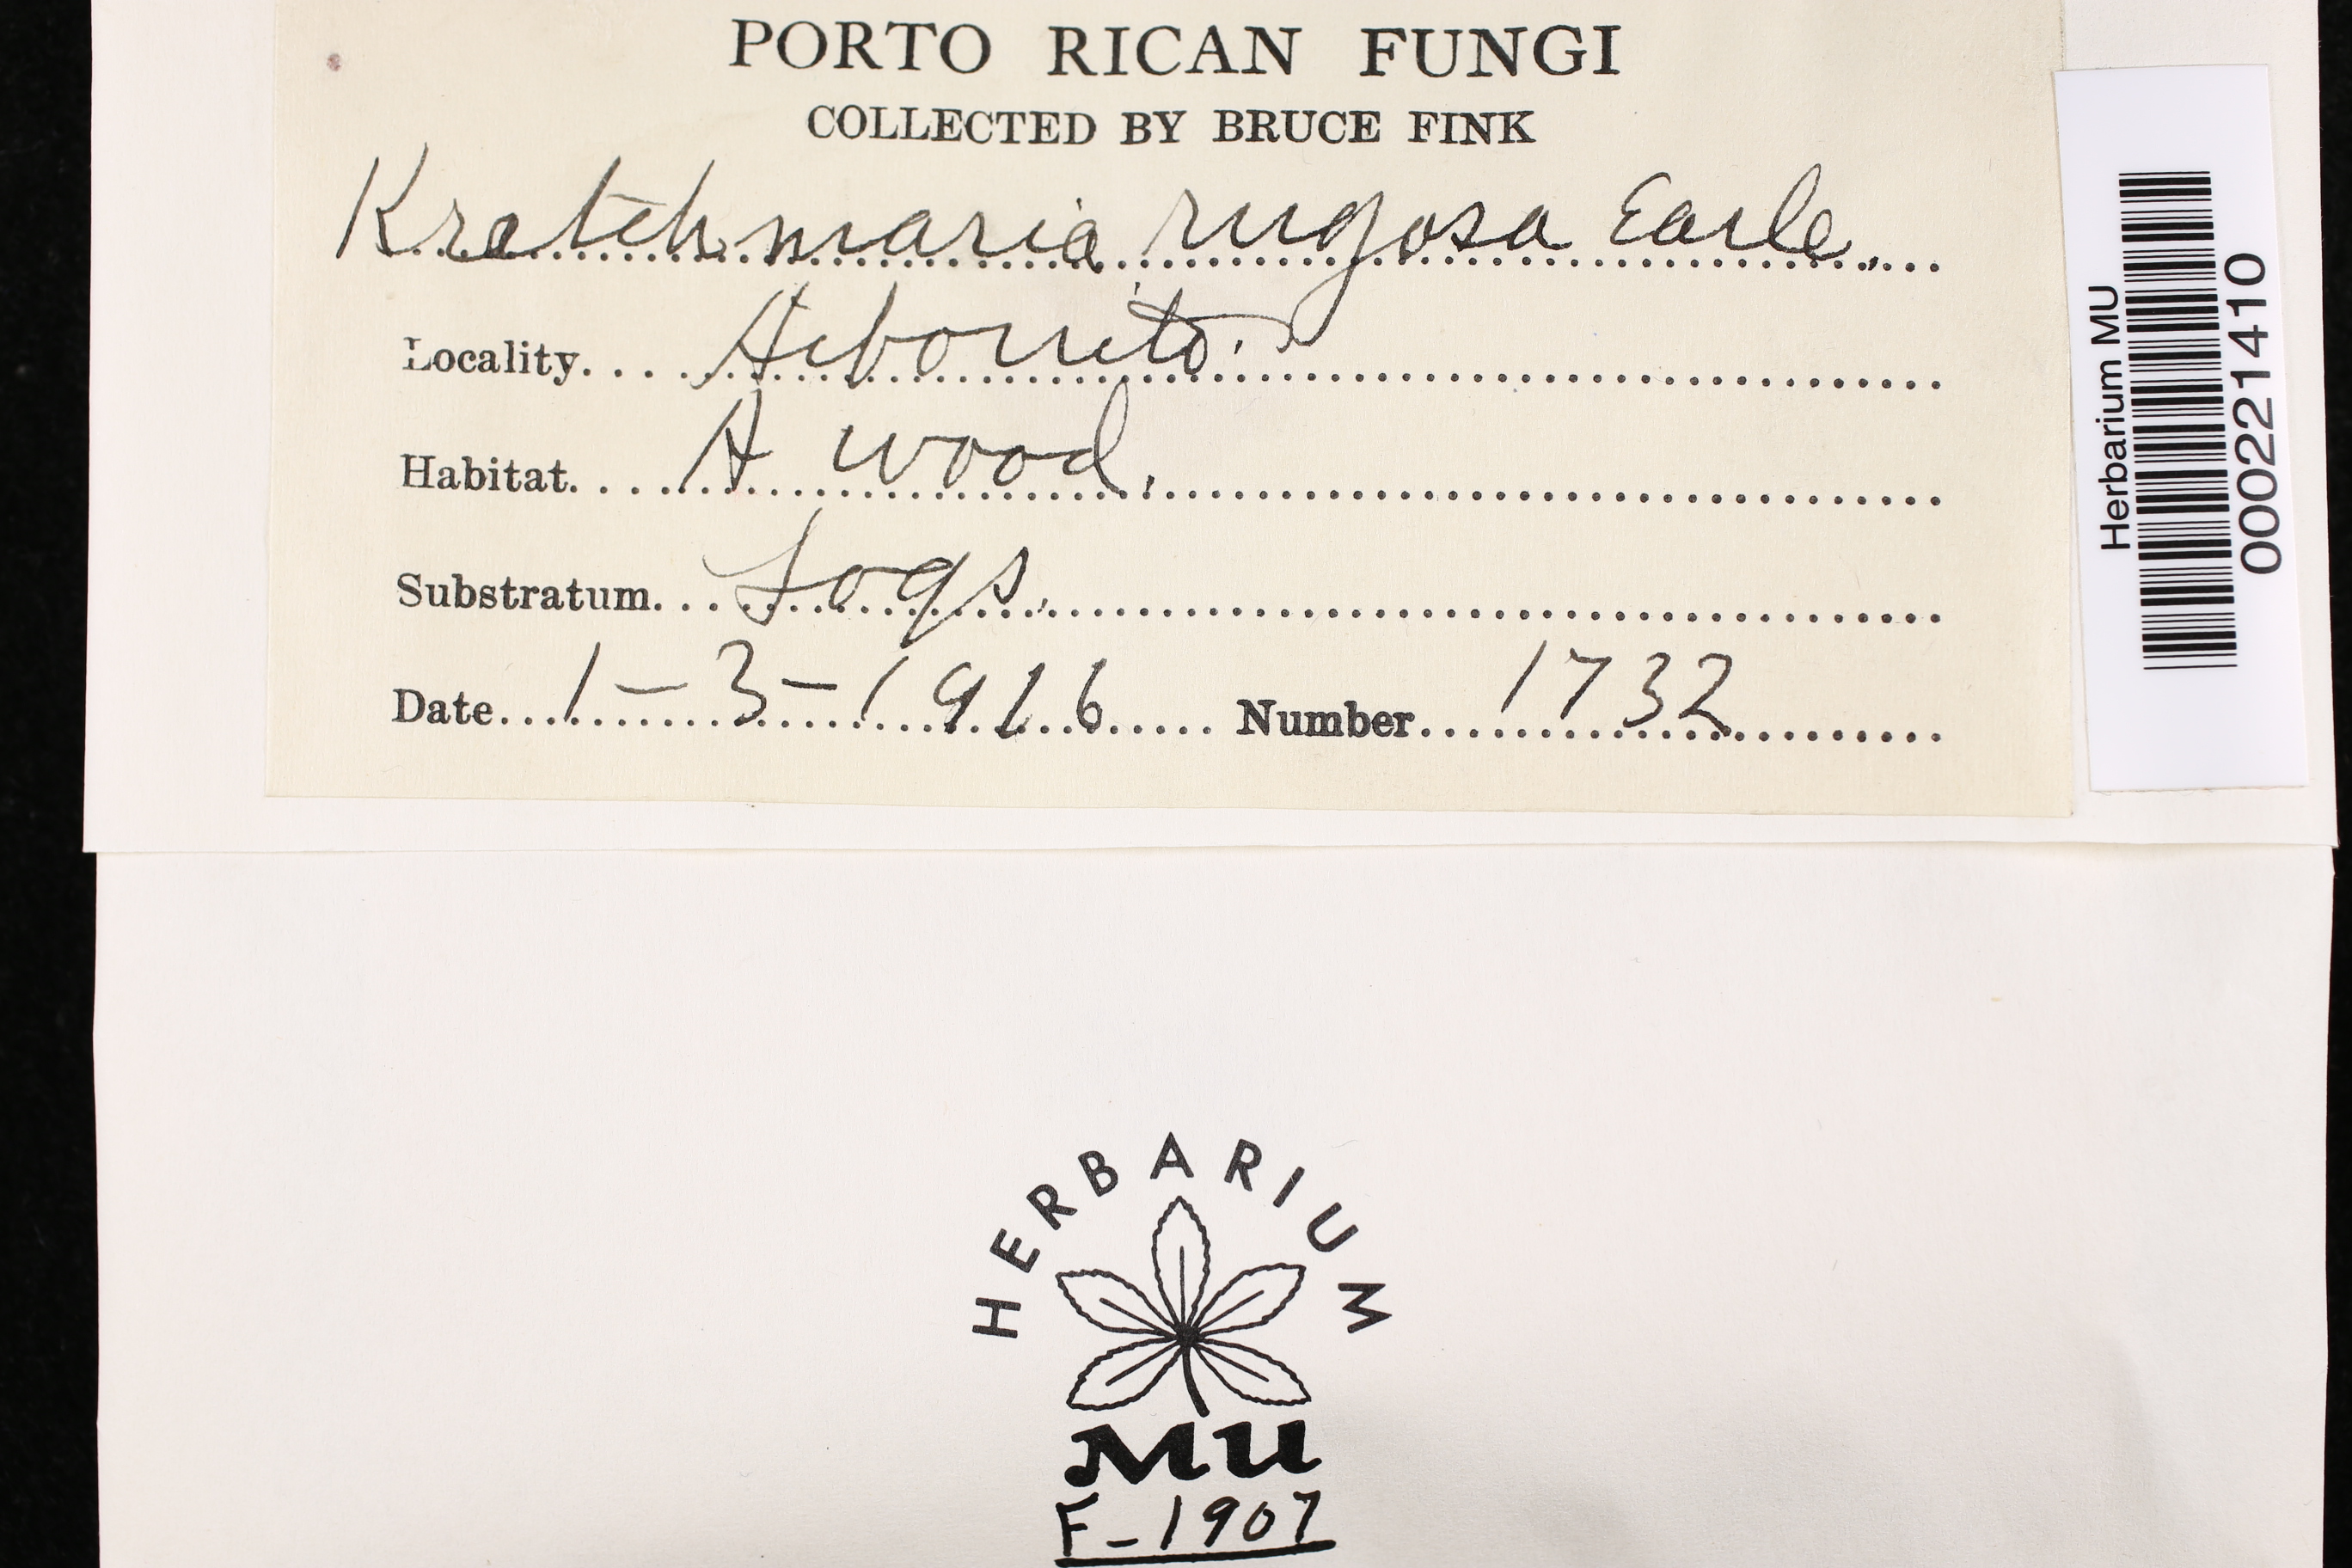 PORTO RICAN FUNGI
COLLECTED BY BRUCE FINK
Kretchmaria rugosa Earle.
Locality.... Aibonito.
Habitat.... A wood.
Substratum... Logs.
Date... 1-3-1916 Number... 1732
Herbarium MU
000221410
HERBARIUM
MU
F-1907